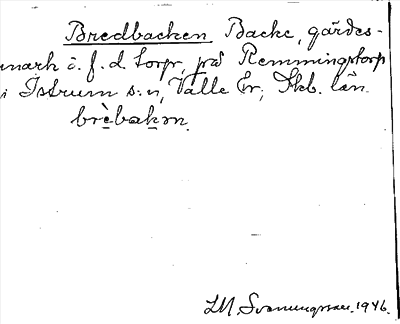 Bredbacken Backe, gärdes-
mark å. f. d. torp, på Remmingstorp
i Istrum s:n, Valle hr; Skb. län.
brèbakən.
LM. Svenungsson. 1946.